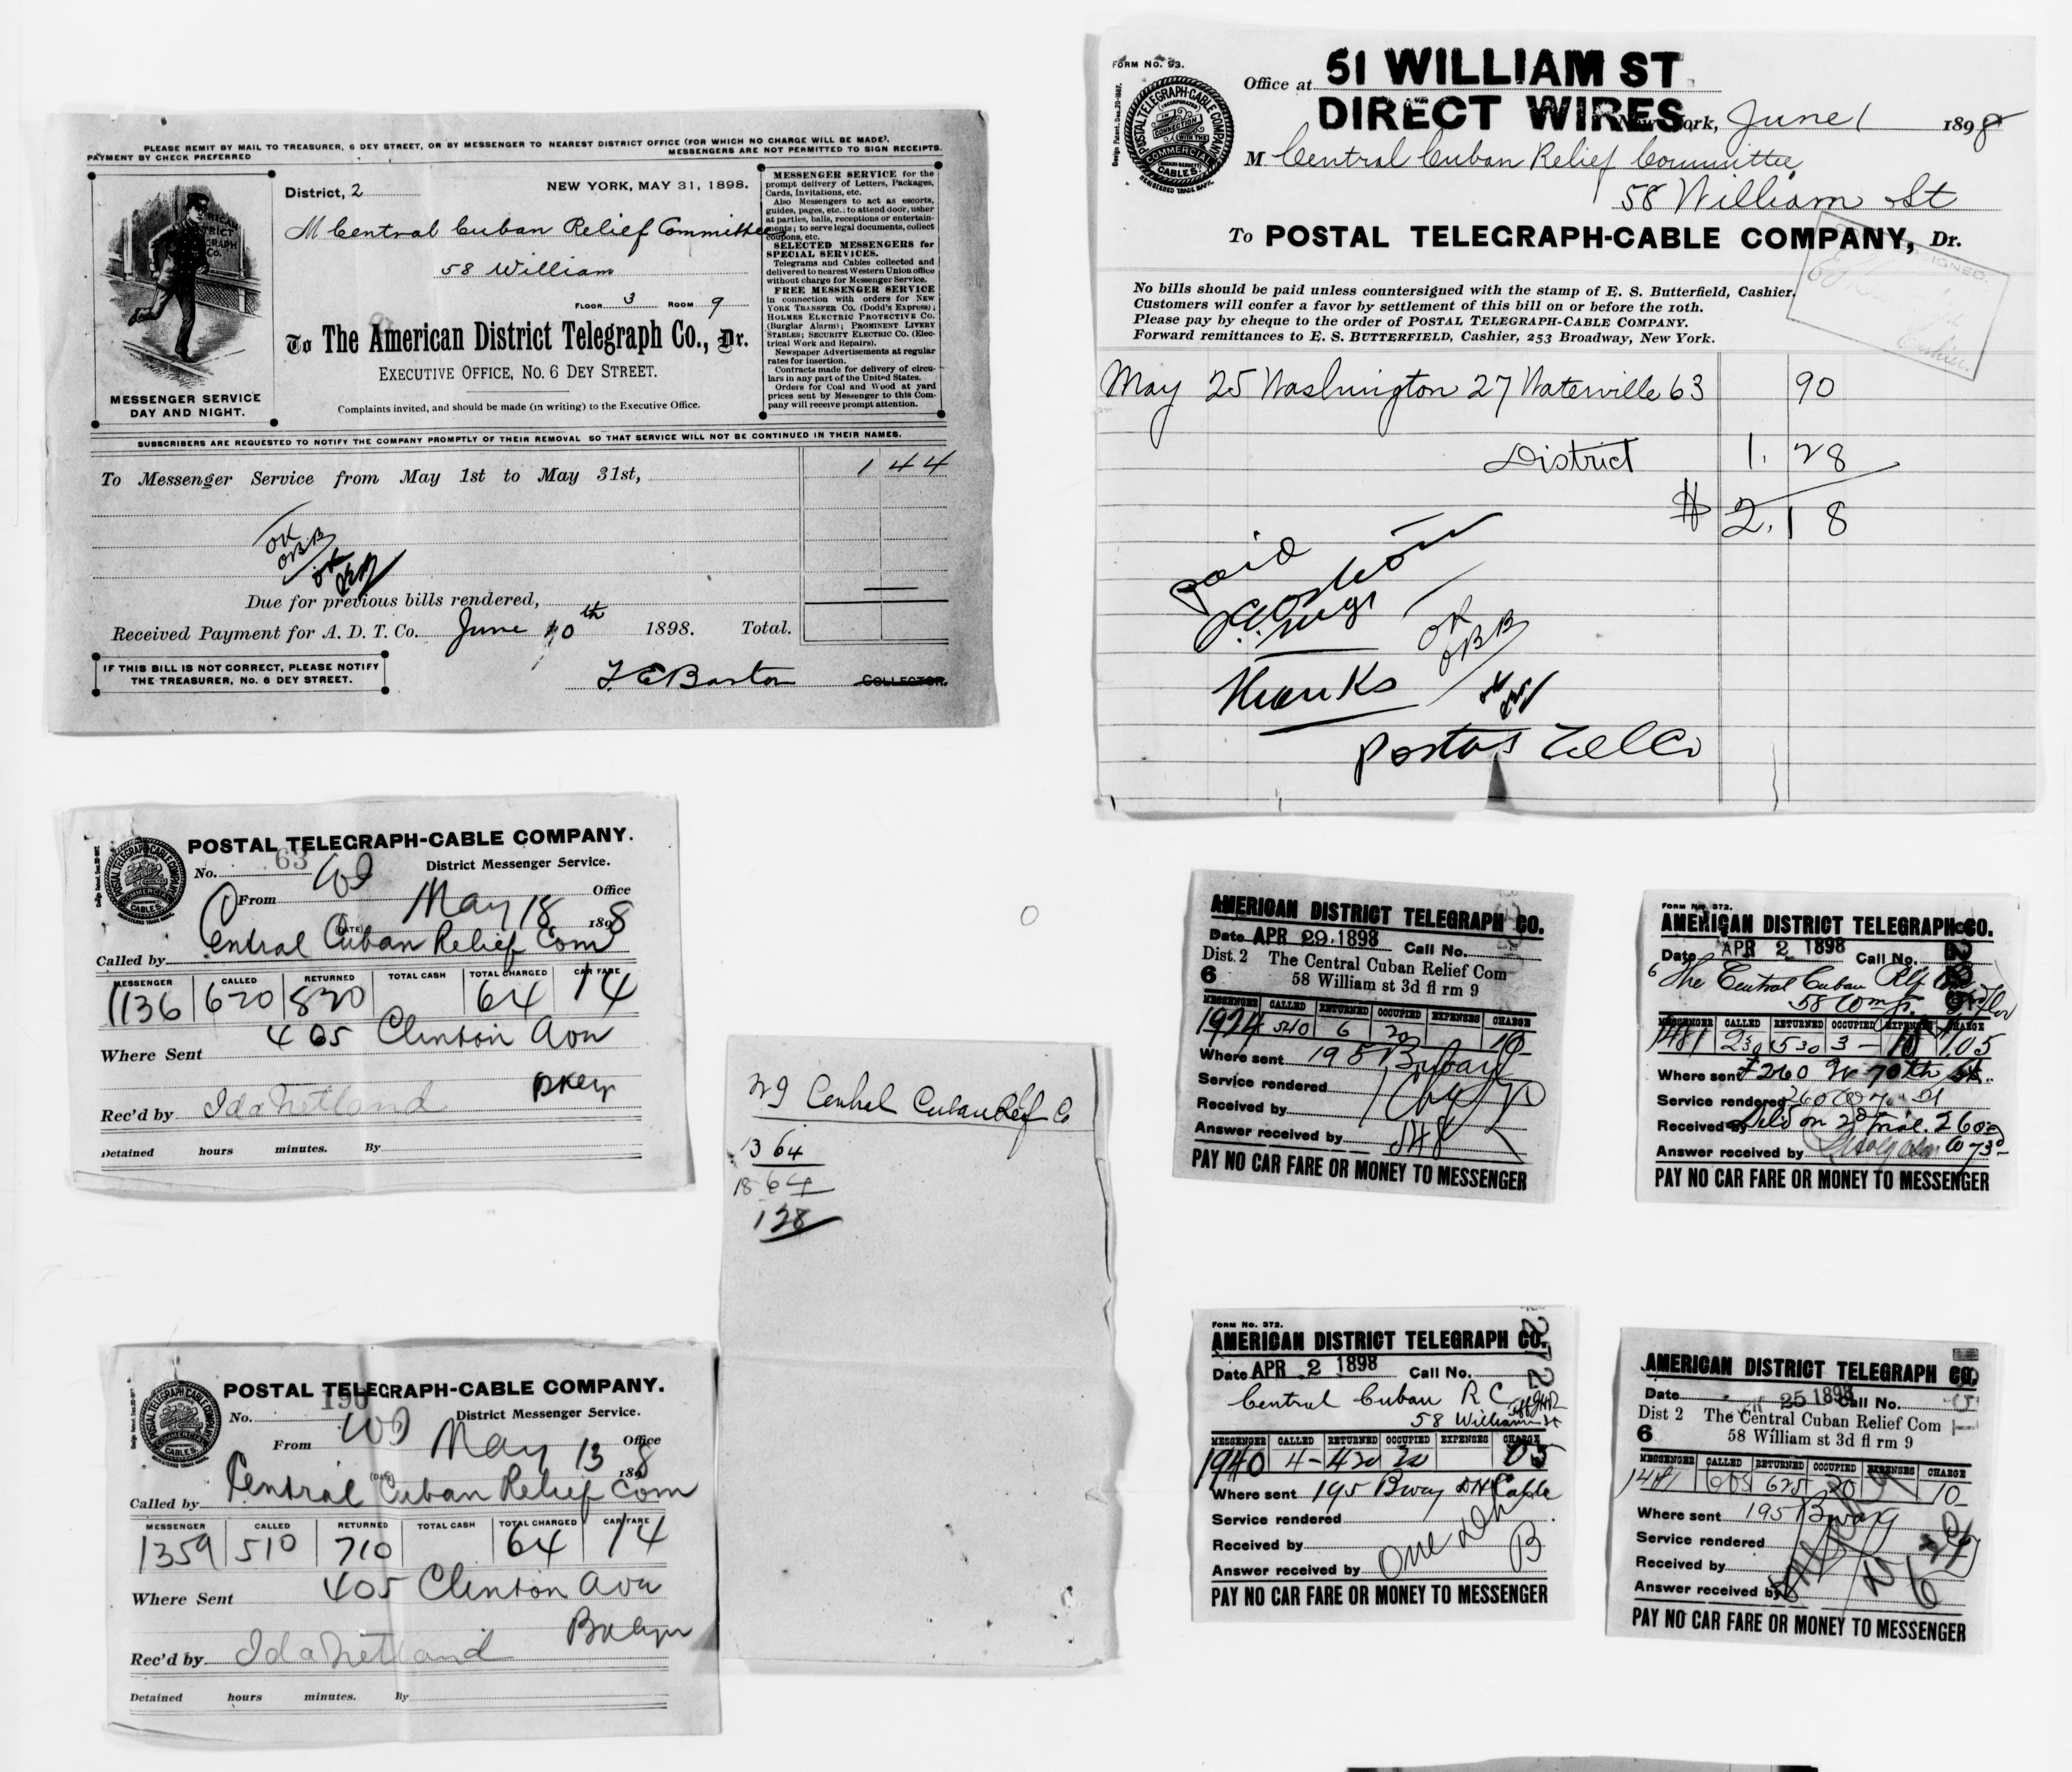 PLEASE REMIT BY MAIL TO TREASURER, 6 DEY STREET, OR BY MESSENGER TO NEAREST DISTRICT OFFICE (FOR WHICH NO CHARGE WILL BE MADE).
PAYMENT BY CHECK PREFERRED MESSENGERS ARE NOT PERMITTED TO SIGN RECEIPTS.
MESSENGER SERVICE
DAY AND NIGHT.
District, 2 NEW YORK, MAY 31, 1898.
M Central Cuban Relief Committee
58 William
FLOOR 3 ROOM 9
To The American District Telegraph Co., Dr.
EXECUTIVE OFFICE, NO. 6 DEY STREET.
Complaints invited, and should be made (in writing) to the Executive Office.
MESSENGER SERVICE for the
prompt delivery of Letters, Packages,
Cards, Invitations, etc.
Also Messengers to act as escorts,
guides, pages, etc.; to attend door, usher
at parties, balls, receptions or entertain-
ments; to serve legal documents, collect
coupons, etc.
SELECTED MESSENGERS for
SPECIAL SERVICES.
Telegrams and Cables collected and
delivered to nearest Western Union office
without charge for Messenger Service.
FREE MESSENGER SERVICE
in connection with orders for NEW
YORK TRANSFER CO. (Dodd's Express);
HOLMES ELECTRIC PROTECTIVE CO.
(Burglar Alarm); PROMINENT LIVERY
STABLES; SECURITY ELECTRIC CO. (Elec-
trical Work and Repairs).
Newspaper Advertisements at regular
rates for insertion.
Contracts made for delivery of circu-
lars in any part of the United States.
Orders for Coal and Wood at yard
prices sent by Messenger to this Com-
pany will receive prompt attention.
SUBSCRIBERS ARE REQUESTED TO NOTIFY THE COMPANY PROMPTLY OF THEIR REMOVAL SO THAT SERVICE WILL NOT BE CONTINUED IN THEIR NAMES.
To Messenger Service from May 1st to May 31st, 1 44
OK
OBB
OK
Due for previous bills rendered,
Received Payment for A. D. T. Co. June 10th 1898. Total.
IF THIS BILL IS NOT CORRECT, PLEASE NOTIFY
THE TREASURER, NO. 6 DEY STREET.
F. E. Barton COLLECTOR.
FORM NO. 93.
Office at 51 WILLIAM ST
DIRECT WIRES
New York, June 1 1898
M Central Cuban Relief Committee
58 William St
To POSTAL TELEGRAPH-CABLE COMPANY, Dr.
No bills should be paid unless countersigned with the stamp of E. S. Butterfield, Cashier.
Customers will confer a favor by settlement of this bill on or before the 10th.
Please pay by cheque to the order of POSTAL TELEGRAPH-CABLE COMPANY.
Forward remittances to E. S. BUTTERFIELD, Cashier, 253 Broadway, New York.
Cashier.
May 25 Washington 27 Waterville 63 90
District 1. 28
$ 2. 18
Paid
OK
OBB
Thanks
Postal Tel Co
POSTAL TELEGRAPH-CABLE COMPANY.
No. 63 District Messenger Service.
From Office
May 18 1898
(DATE)
Called by Central Cuban Relief Com
MESSENGER CALLED RETURNED TOTAL CASH TOTAL CHARGED CAR FARE
1136 620 820 64 14
405 Clinton Ave
Where Sent
Bklyn
Rec'd by Ida Netland
Detained hours minutes. By
W9 Central Cuban Relf Co
13 64
18 64
128
POSTAL TELEGRAPH-CABLE COMPANY.
No. 190 District Messenger Service.
From Office
May 13 1898
(DATE)
Called by Central Cuban Relief Com
MESSENGER CALLED RETURNED TOTAL CASH TOTAL CHARGED CAR FARE
1359 510 710 64 14
Where Sent 405 Clinton Ave
Bklyn
Rec'd by Ida Netland
Detained hours minutes. By
AMERICAN DISTRICT TELEGRAPH CO.
Date APR 29 1898 Call No.
Dist. 2 The Central Cuban Relief Com
6 58 William st 3d fl rm 9
MESSENGER CALLED RETURNED OCCUPIED EXPENSES CHARGE
1924 540 6 20 10
Where sent 195 Bway
Service rendered
Received by
Answer received by
PAY NO CAR FARE OR MONEY TO MESSENGER
FORM NO. 372.
AMERICAN DISTRICT TELEGRAPH CO.
Date APR 2 1898 Call No.
6 The Central Cuban Rlf
58 Wm
MESSENGER CALLED RETURNED OCCUPIED EXPENSES CHARGE
1481 230 530 3 - 10 1.05
Where sent 260 W 70th St.
Service rendered 260 W 70 St
Received by
Answer received by
PAY NO CAR FARE OR MONEY TO MESSENGER
FORM NO. 372.
AMERICAN DISTRICT TELEGRAPH CO.
Date APR 2 1898 Call No.
Central Cuban R C
58 William St
MESSENGER CALLED RETURNED OCCUPIED EXPENSES CHARGE
1940 4- 420 20 05
Where sent 195 Bway Cable
Service rendered
Received by
Answer received by One
B
PAY NO CAR FARE OR MONEY TO MESSENGER
AMERICAN DISTRICT TELEGRAPH CO.
Date 25 1898 Call No.
Dist 2 The Central Cuban Relief Com
6 58 William st 3d fl rm 9
MESSENGER CALLED RETURNED OCCUPIED EXPENSES CHARGE
1481 605 625 20 10
Where sent 195 Bway
Service rendered
Received by
Answer received by
PAY NO CAR FARE OR MONEY TO MESSENGER